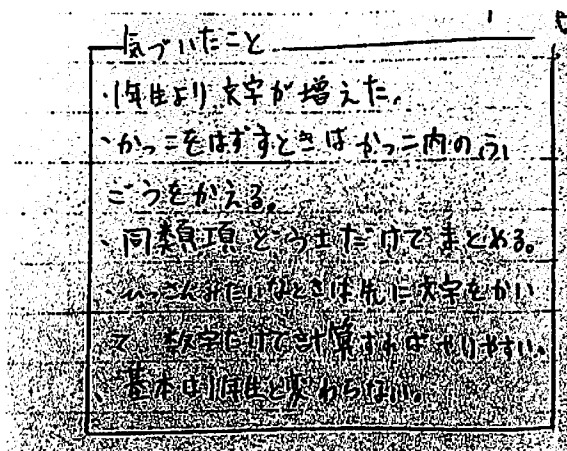 気づいたこと
・1年生より文字が増えた。
・かっこをはずすときはかっこ内のふ
ごうをかえる。
・同類項どうしだけでまとめる。
・ひっさんみたいなときは先に文字をかい
て 数字だけで計算すればやりやすい。
・基本は1年生と変わらない。